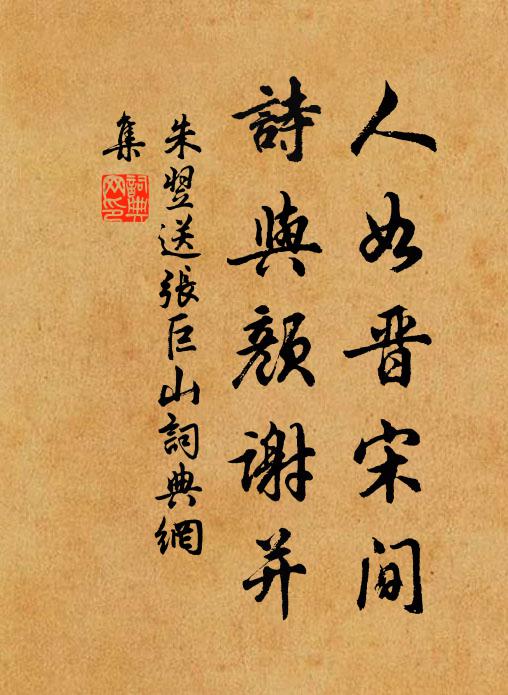 人如晋宋间
詩與顔谢并
朱翌送張巨山詞典網
集
詞典
网印